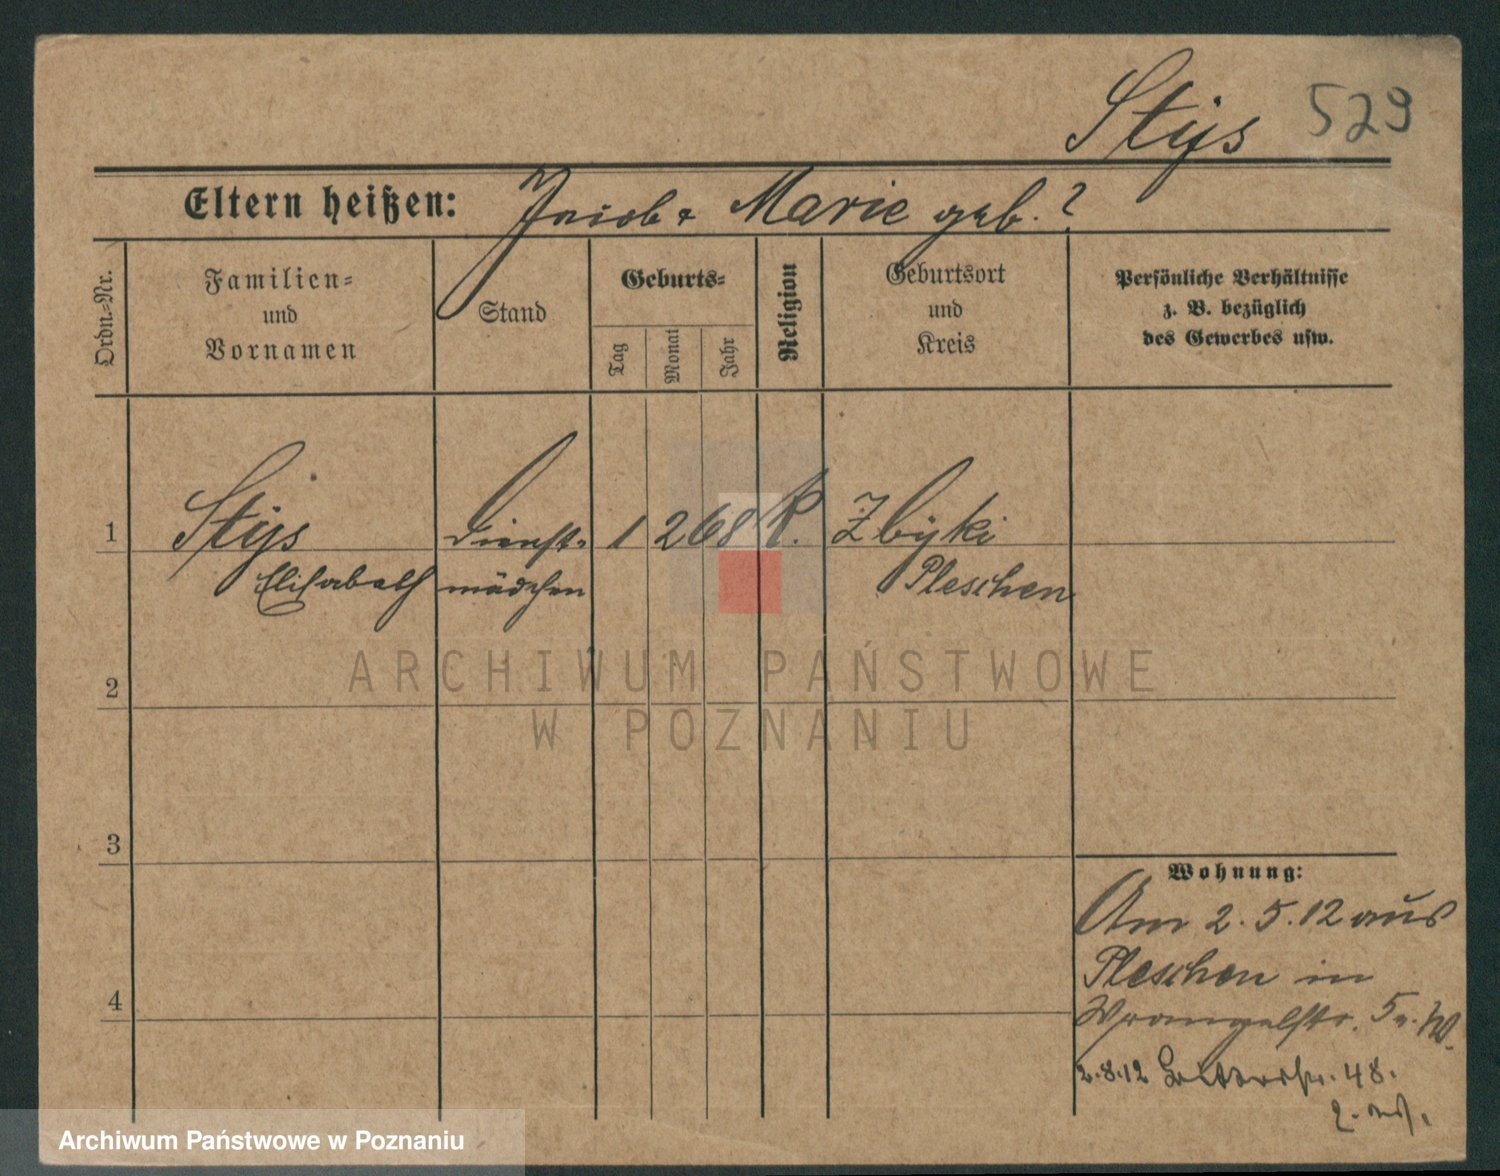 Stys 529
Eltern heißen: Jacob & Marie geb. ?
Ordn.-Nr.
Familien-
und
Vornamen
Stand
Geburts-
Tag
Monat
Jahr
Religion
Geburtsort
und
Kreis
Persönliche Verhältnisse
z. B. bezüglich
des Gewerbes usw.
1 Stys Dienst- 1 2 68 K. Zbyki
Elisabeth mädchen Pleschen
ARCHIWUM PAŃSTWOWE
W POZNANIU
2
3
4
Wohnung:
Am 2.5.12 aus
Pleschen in
Wrangelstr. 5
2.8.12 48.
Archiwum Państwowe w Poznaniu